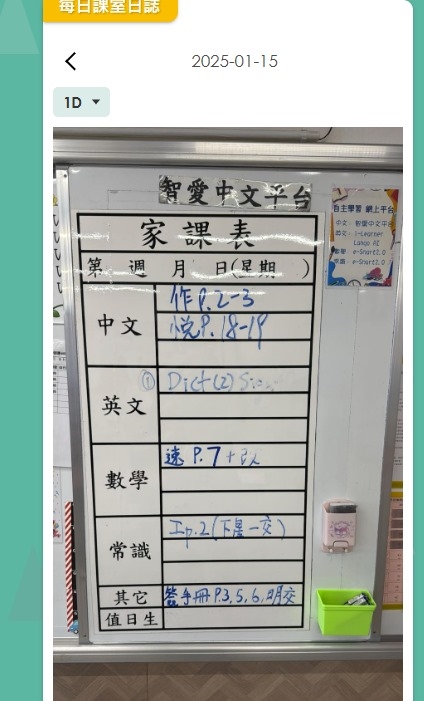 每日課室日誌
2025-01-15
1D
智愛中文平台
家課表
第 週 月 日(星期 )
中文
作P.2-3
悅P.18-19
英文
① Dict(2)
數學
速 P.7+
常識
工p.2(下星一交)
其它
簽手冊P.3,5,6,明交
值日生
自主學習 網上平台
中文: 智愛中文平台
i-Learner
Lango AI
e-Smart2.0
e-Smart2.0